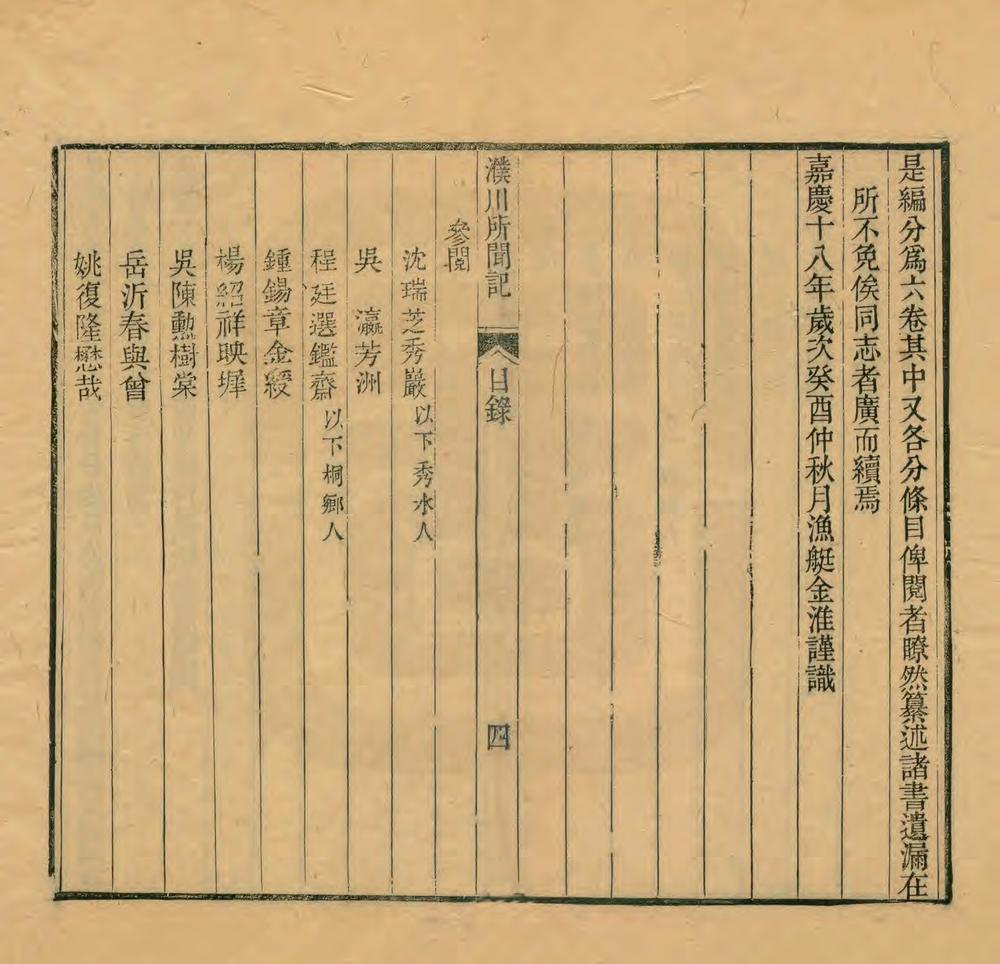 是編分爲六卷其中又各分條目俾閱者瞭然纂述諸書遺漏在
所不免俟同志者廣而續焉
嘉慶十八年歲次癸酉仲秋月漁艇金淮謹識
濮川所聞記 目錄 四
參閱
沈瑞芝秀巖以下秀水人
吳 瀛芳洲
程廷選鑑齋以下桐鄉人
鍾錫章金綬
楊紹祥映墀
吳陳勳樹棠
岳沂春與曾
姚復隆懋哉